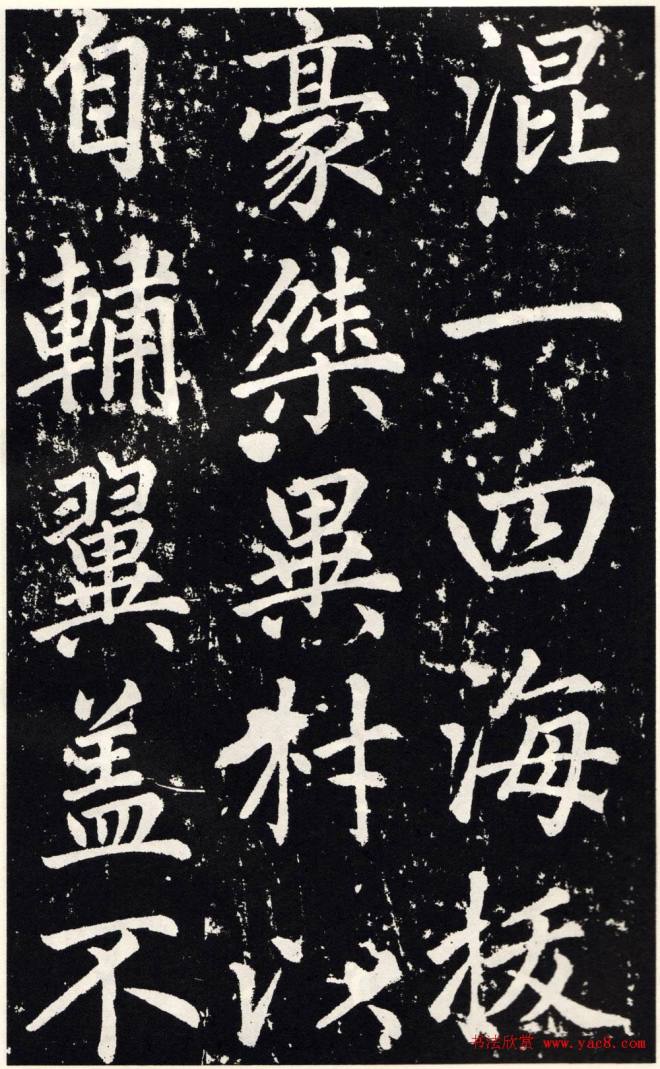 混一四海拔
豪桀畢材以
自輔翼盖不
书法欣赏 www.yac8.com